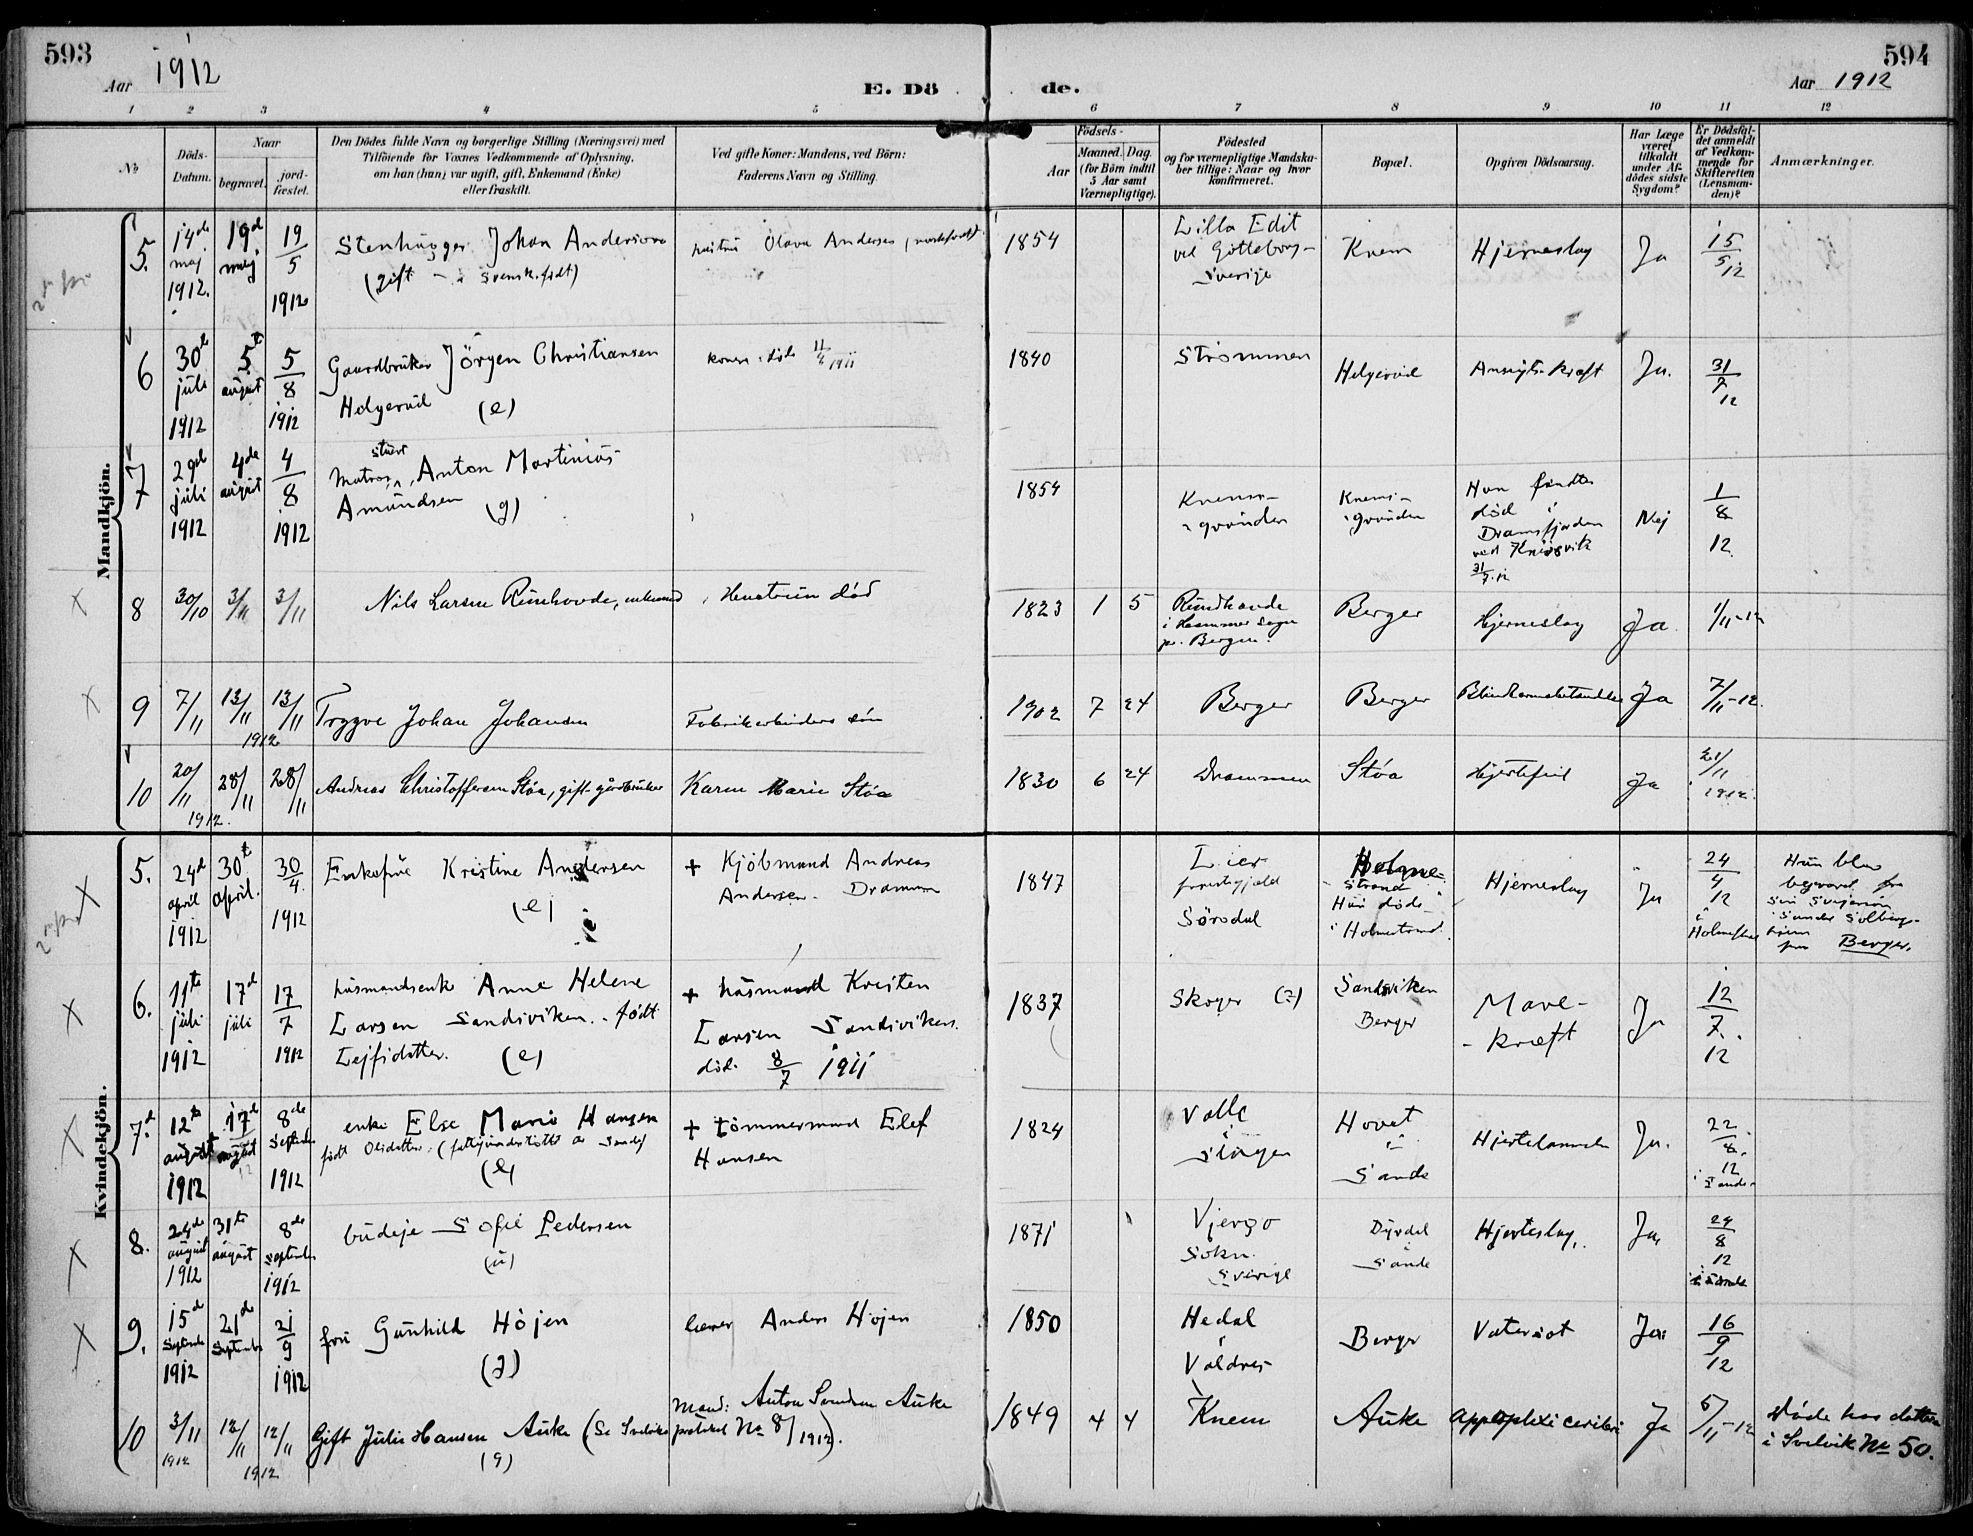 593
Aar 1912
E. Dö
de.
594
Aar 1912
1 2 3 4 5 6 7 8 9 10 11 12
No
Döds-Datum.
Naar
begravet.
jord-fæstet.
Den Dödes fulde Navn og borgerlige Stilling (Næringsvei) med
Tilföiende for Voxnes Vedkommende af Oplysning,
om han (hun) var ugift, gift, Enkemand (Enke)
eller fraskilt.
Ved gifte Koner: Mandens, ved Börn:
Faderens Navn og Stilling.
Födsels-
Aar
Maaned. Dag.
(for Börn indtil
5 Aar samt
Værnepligtige).
Födested
og for værnepligtige Mandska-
ber tillige: Naar og hvor
konfirmeret.
Bopæl.
Opgiven Dödsaarsag.
Har Læge
været
tilkaldt
under Af-
dödes sidste
Sygdom?
Er Dödsfal-
det anmeldt
af Vedkom-
mende for
Skifteretten
(Lensman-
den)?
Anmærkninger.
Mandkjön.
5. 14de maj 1912. 19de maj 19/5 1912 Stenhugger Johan Anderson (gift - svensk født) hustru Olava Andersen 1854 Lilla Edit ved Götteborg - Sverige Knem Hjerneslag Ja 15/5 12
6 30te juli 1912 5te august 5/8 1912 Gaardbruker Jörgen Christiansen Helgerud (e) konen død 11/4 1911 1840 Strømmen Helgerud Ansigts kræft Ja. 31/7 12
7 29de juli 1912 4de august 4/8 1912 Matros, Anton Martinius Amundsen (g) 1854 Knems-grunden Knems-grunden Han fandtes död i Dramsfjorden ved Knivsvik 31/7 12 Nej 1/8 12.
8 30/10 3/11 3/11 Nils Larsen Rundhovde, enkemand Hustruen død 1823 1 5 Rundhovde i Hammer Sogn pr. Bergen. Berger Hjerneslag Ja. 1/11-12
9 7/11 13/11 13/11 1912 Trygve Johan Johansen Fabrikarbeiders søn 1902 7 24 Berger Berger Blindtarmsbetændelse Ja 7/11-12.
10 20/11 28/11 28/11 1912. Andreas Christoffersen Støa, gift gårdbruker Karen Marie Støa 1830 6 24 Drammen Støa Hjertefeil Ja 21/11 1912.
Kvindekjön.
5. 24de april 1912 30te april. 30/4. 1912 Enkefru Kristine Andersen (e) + Kjöbmand Andreas Andersen. Drammen 1847 Lier præstegjeld Sörsdal Holmestrand Hun døde i Holmestrand. Hjerneslag Ja 24/4 12 i Holmestrand Hun blev begravet fra sin svigersøn Sander Solberg hjem paa Berger.
6. 11te juli 1912 17de juli 17/7 1912 husmandsenke Anne Helene Larsen Sandviken. født Lejfsdatter. (e) + husmand Kristen Larsen Sandviken. död. 8/7 1911 1837 Skoger (?) Sandviken Berger Mave-kræft Ja 12/7. 12
7. 12te august 1912 17de august 8de September 1912 enke Else Marie Hansen født Olsdatter. (fattigunderstøttet av Sande) (e) + tömmermand Elef Hansen 1824 Valle i Slagen Hovet i Sande Hjertelammelse Ja. 22/8. 12 i Sande
8. 24de august 1912 31te august 8de September 1912 budeje Sofie Pedersen (u) 1871 Sokn. Sverige Dyrdal i Sande Hjerteslag. Ja, 24/8 12 i Sande
9. 15de September 1912 21de September 21/9 1912 fru Gunhild Höjen (g) lærer Anders Höjen 1850 Hedal i Valdres Berger Vatersot Ja. 16/9 12
10 3/11 1912 12/11 12/11 1912 Gift Julie Hansen Auke (Se Svelviks protokol No 8/1912). (g) Mand: Anton Svendsen Auke 1849 4 4 Knem Auke Appoplexi cerebri Ja 5/11-12 Døde hos datteren i Svelvik No 50.